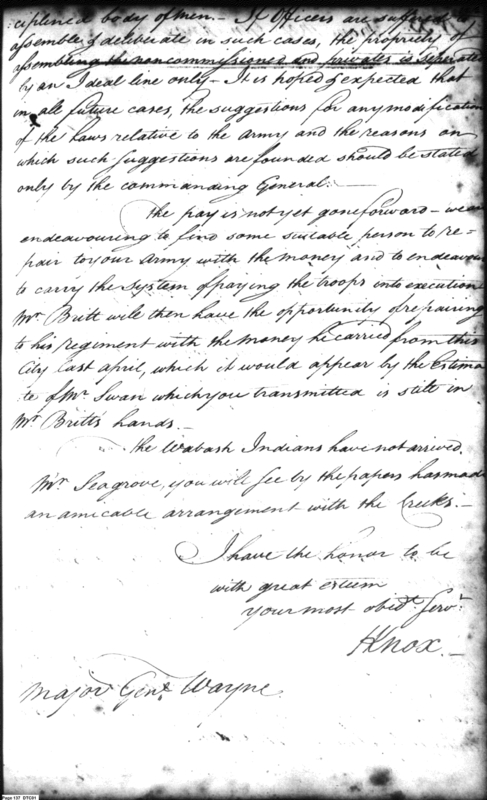 ciplined body of men – If Officers are suffered to
assemble & deliberate in such cases, the propriety of
assembling the noncommissioned and privates is seperated
by an Ideal line only – It is hoped & expected that
in all future cases, the suggestions for any modification
of the Laws relative to the Army and the reasons on
which such suggestions are founded should be stated
only by the commanding General. –
The pay is not yet gone forward – we are
endeavouring to find some suitable person to re=
pair to your Army with the money and to endeavour
to carry the system of paying the troops into execution
Mr. Britt will then have the opportunity of repairing
to his regiment with the money he carried from this
City last april, which it would appear by the Estima
te of Mr Swan which you transmitted is still in
Mr. Britts hands. –
The Wabash Indians have not arrived.
Mr. Seagrove, you will see by the papers has made
an amicable arrangement with the Creeks. –
I have the honor to be
with great esteem
your most obedt. Servt.
HKnox. –
Major Genl. Wayne.
Page 137 DTC01